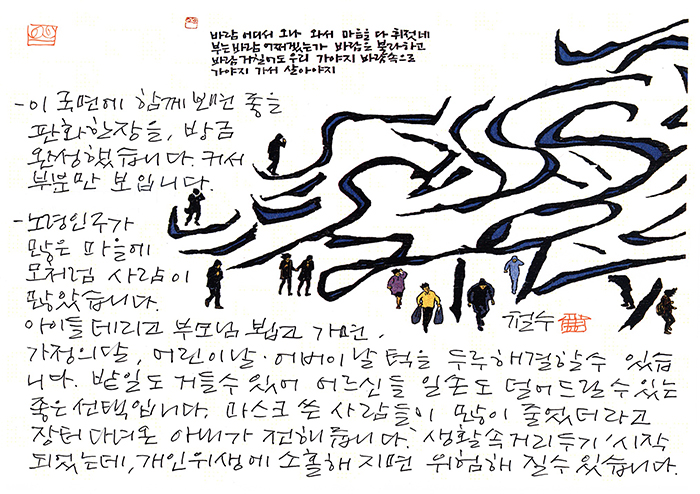 바람 어디서 오나 와서 마음을 다 휘젓네
부는 바람 어쩌겠는가 바람은 불라하고
바람 거칠어도 우리 가야지 바람속으로
가야지 가서 살아야지
-이 국면에 함께 보면 좋을
판화한장을, 방금
완성했습니다. 커서
부분만 보입니다.
-노령인구가
많은 마을에
모처럼 사람이
많았습니다.
아이들 데리고 부모님 뵙고 가면,
가정의달, 어린이날·어버이날 턱을 두루해결할수 있습
니다. 밭일도 거들수있어 어르신들 일손도 덜어드릴수있는
좋은선택입니다. 마스크 쓴 사람들이 많이 줄었더라고
장터다녀온 아내가 전해줍니다. '생활속거리두기'시작
되었는데, 개인위생에 소홀해지면 위험해 질수있습니다.
철수